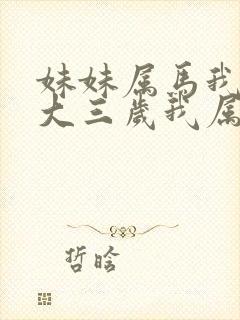 妹妹属马我
大三岁我属
哲晗